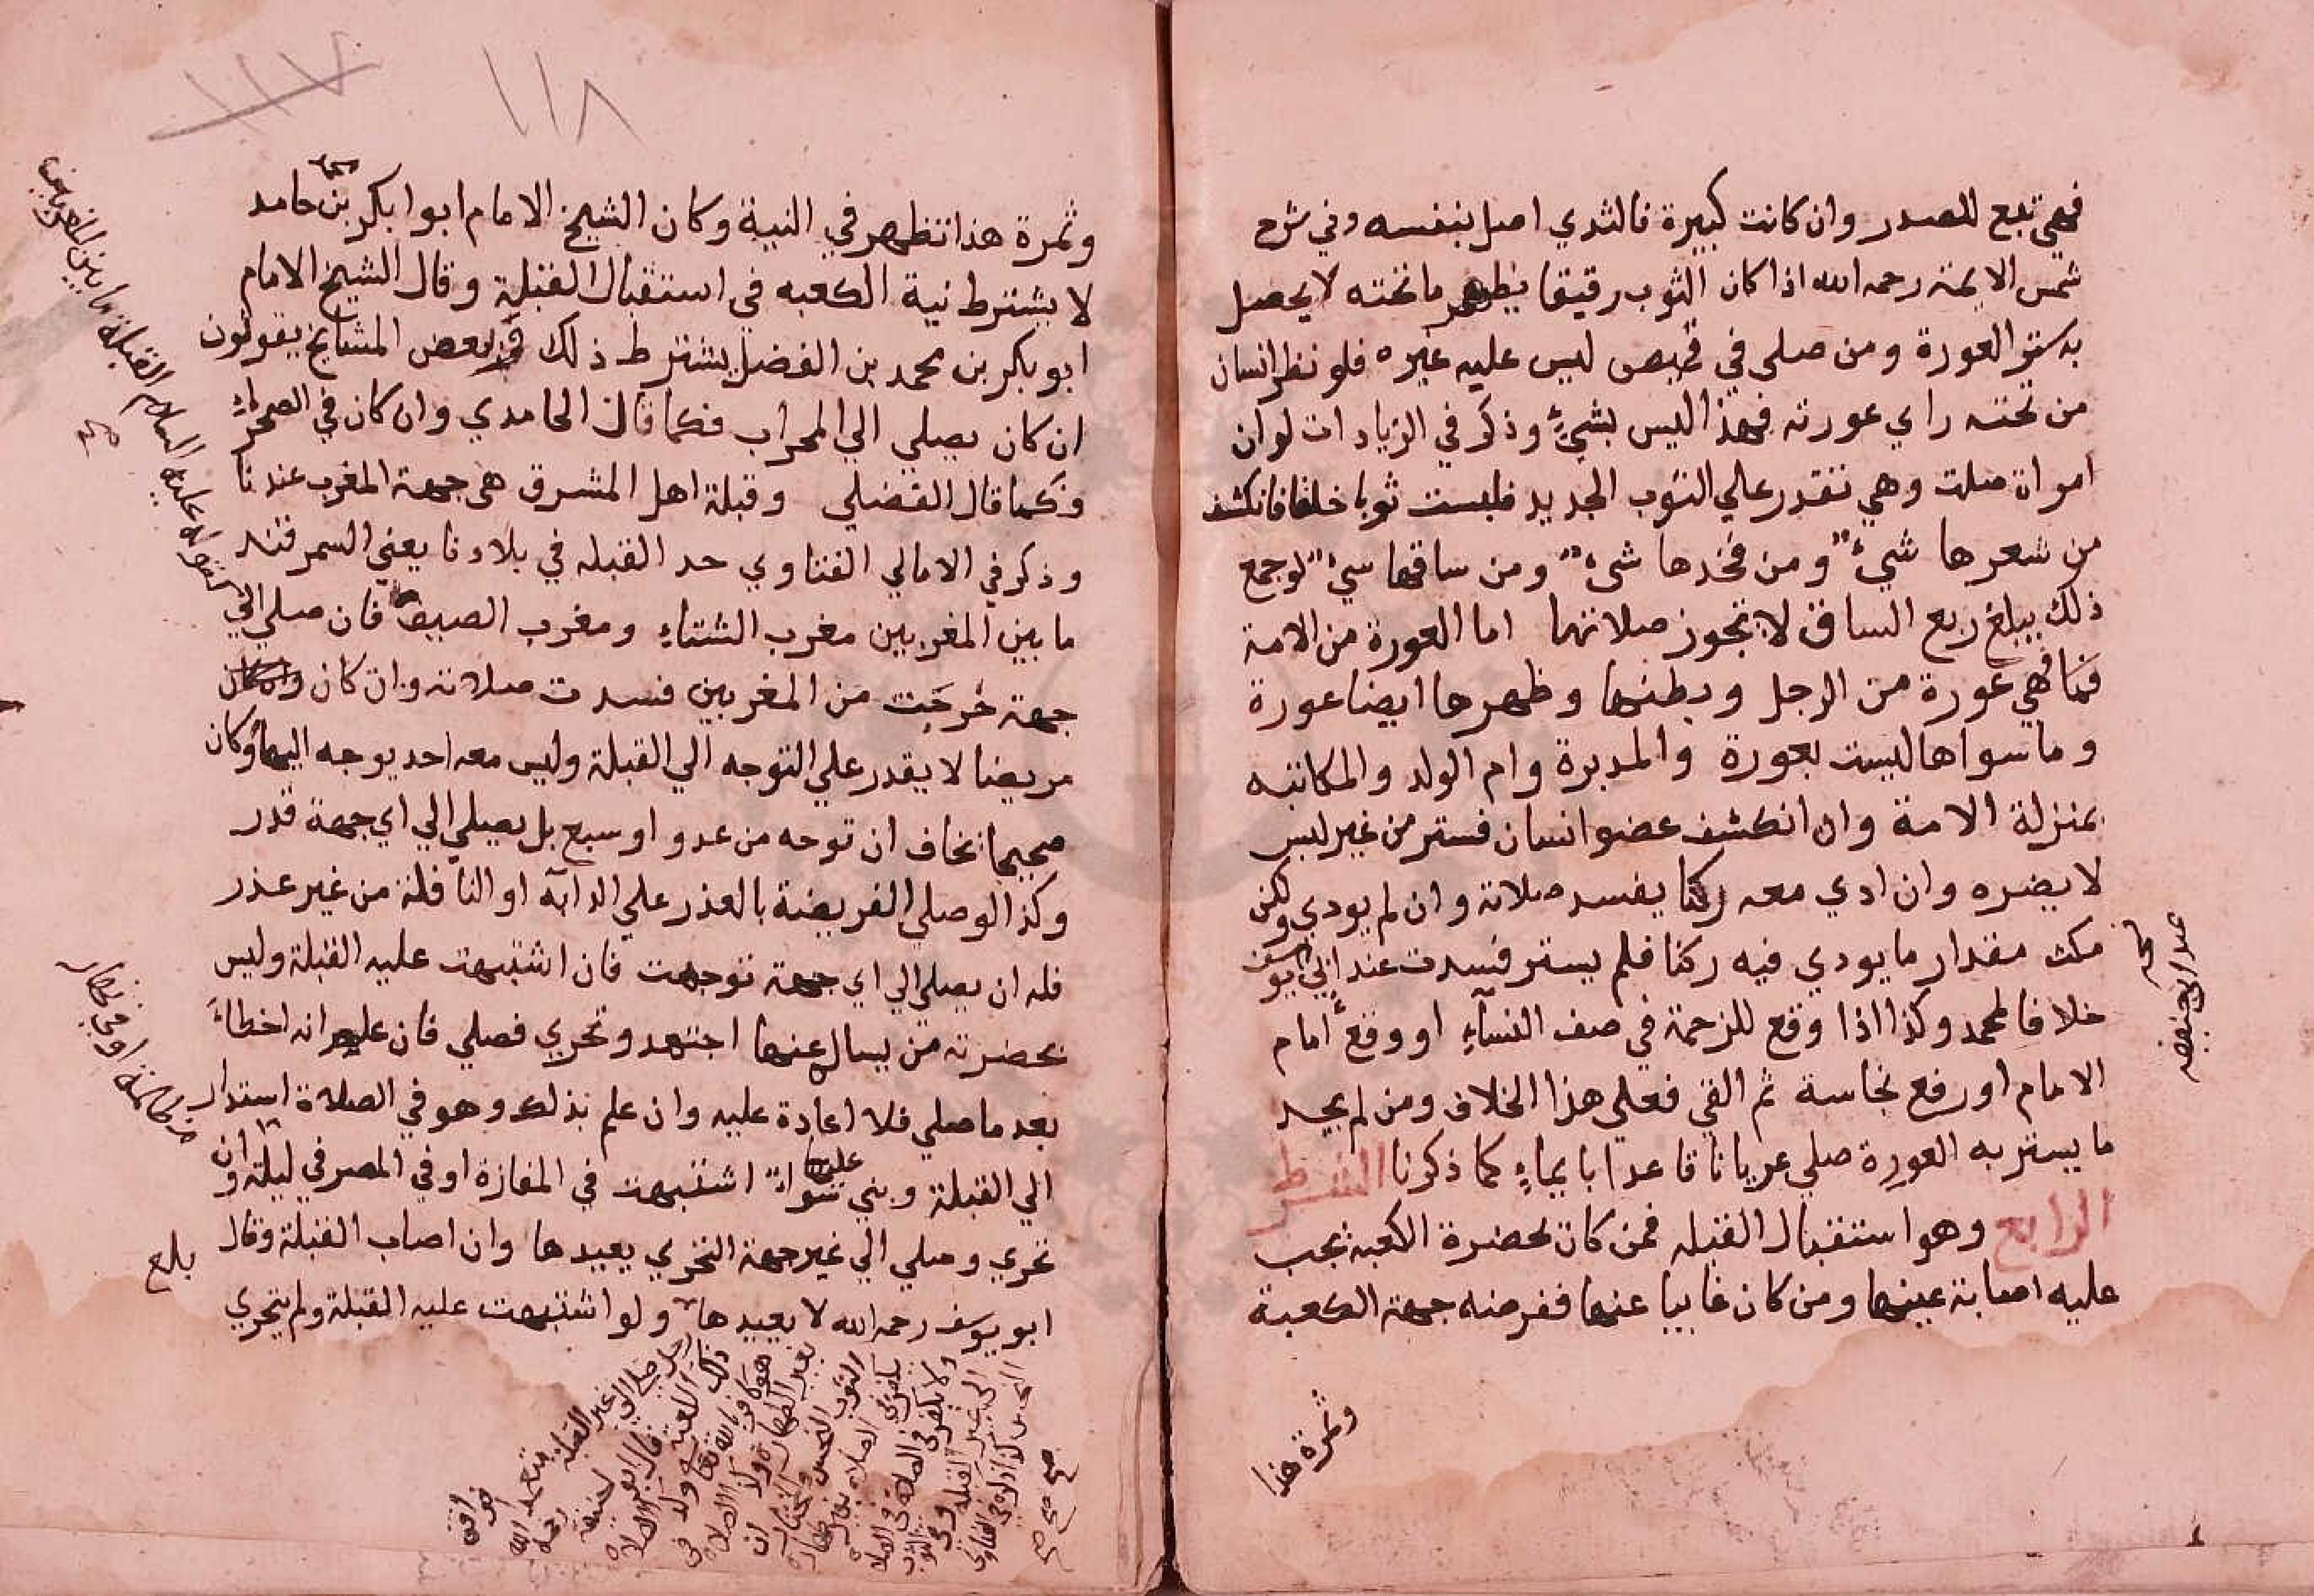 فهي تبع للصدر وان كانت كبيرة فالثدي اصل بنفسه وفي شرح
شمس الايمة رحمه الله اذا كان الثوب رقيقا يظهر ما تحته لا يحصل
به ستر العورة ومن صلي في قميص ليس عليه غيره فلو نظر انسان
من تحته راي عورته فهذا ليس بشيء وذكر في الزيادات لو ان
امراة صلت وهي تقدر علي الثوب الجديد فلبست ثوبا خلقا فانكشف
من شعرها شيء ومن فخدها شيء ومن ساقها شيء لو جمع
ذلك يبلغ ربع الساق لا تجوز صلاتها اما العورة من الامة
فما هي عورة من الرجل وبطنها وظهرها ايضا عورة
وما سواها ليست بعورة والمدبرة وام الولد والمكاتبه
بمنزلة الامة وان انكشف عضو انسان فستر من غير لبس
لا يضره وان ادي معه ركنا يفسد صلاته وان لم يودي ولكن
مكث مقدار ما يودي فيه ركنا فلم يستر فسدت عند ابي يوسف
خلافا لمحمد وكذا اذا وقع للزحمة في صف النسآء او وقع امام
الامام او رفع نجاسة ثم القي فعلي هذا الخلاف ومن لم يجد
ما يستر به العورة صلي عريانا قاعدا بايماء كما ذكرنا الشرط
الرابع وهو استقبال القبله فمن كان بحضرة الكعبة يجب
عليه اصابة عينها ومن كان غايبا عنها ففرضه جهة الكعبة
وثمرة هذا
١١٨
وثمرة هذا تظهر في النية وكان الشيخ الامام ابوا بكر بن حامد
لا يشترط نية الكعبه في استقبال القبلة وقال الشيخ الامام
ابو بكر بن محمد بن الفضل يشترط ذلك وبعض المشايخ يقولون
ان كان يصلي الي المحراب فكما قال الحامدي وان كان في الصحراء
فكما قال الفضلي وقبلة اهل المشرق هي جهة المغرب عندنا
وذكر في الامالي الفتاوي حد القبله في بلادنا يعني السمرقند
ما بين المغربين مغرب الشتاء ومغرب الصيف فان صلي الي
جهة خرجت من المغربين فسدت صلاته وان كان
مريضا لا يقدر علي التوجه الي القبلة وليس معه احد يوجه اليها او كان
صحيحا يخاف ان توجه من عدو او سبع بل يصلي الي اي جهة قدر
وكذا لو صلي الفريضة بالعذر علي الدابة او النافلة من غير عذر
فله ان يصلي الي اي جهة توجهت فان اشتبهت عليه القبلة وليس
بحضرته من يسال عنها اجتهد وتحري فصلي فان علم انه اخطاء
بعد ما صلي فلا اعادة عليه وان علم بذلك وهو في الصلاة استدار
الي القبلة وبني سواء اشتبهت في المفازة او في المصر في ليلة وان
تحري وصلي الي غير جهة التحري يعيدها وان اصاب القبلة وقال
ابو يوسف رحمه الله لا يعيدها ولو اشتبهت عليه القبلة ولم يتحري
بلغ